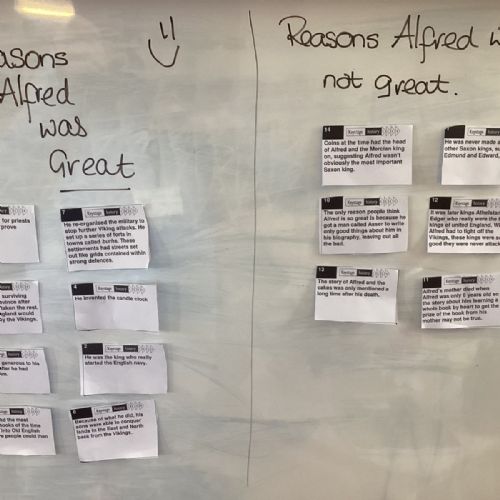 Reasons
Alfred
was
Great
for priests
prove
7
Keystage history
He re-organised the military to
stop further Viking attacks. He
set up a series of forts in
towns called burhs. These
settlements had streets set
out like grids contained within
strong defences.
surviving
vince after
taken the rest,
ngland would
by the Vikings.
4
Keystage history
He invented the candle clock
generous to his
after he had
2
Keystage history
He was the king who really
started the English navy.
the most
books of the time
into Old English
re people could than
6
Keystage history
Because of what he did, his
sons were able to conquer
lands to the East and North
back from the Vikings.
Reasons Alfred w
not great.
14
Keystage history
Coins at the time had the head
of Alfred and the Mercian king
on, suggesting Alfred wasn't
obviously the most important
Saxon king.
Keystage history
He was never made a
other Saxon kings, su
Edmund and Edward,
10
Keystage history
The only reason people think
Alfred is so great is because he
got a man called Asser to write
only good things about him in
his biography, leaving out all
the bad.
12
Keystage history
It was later kings Athelstan
Edgar who really were the f
kings of united England. Wh
Alfred had to fight off the
Vikings, these kings were so
good they were never attack
13
Keystage history
The story of Alfred and the
cakes was only mentioned a
long time after his death.
11
Keystage history
Alfred's mother died when
Alfred was only 6 years old so
the story about him learning a
whole book by heart to get the
prize of the book from his
mother may not be true.